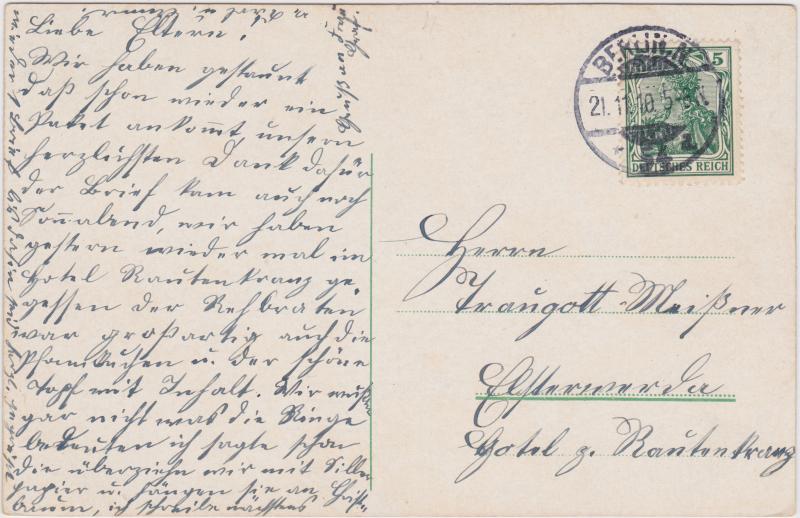 Liebe Eltern!
Wir haben gestaunt
daß schon wieder ein
Paket ankommt unsern
herzlichsten Dank dafür
der Brief kam auch noch
Sonnabend, wir haben
gestern wieder mal im
Hotel Rautenkranz ge
gessen der Rehbraten
war großartig auch die
Pfannkuchen u. der schöne
Topf mit Inhalt. Wir wußten
gar nicht was die Ringe
bedeuten ich sagte schon
die überziehn wir mit Silber
papier u. hängen sie an Christ-
baum, ich schreibe nächstens
wieder
seid
herzl. gegrüßt
u.
BERLIN N.
21.11.10. 5-6 N.
5
DEUTSCHES REICH
Herrn
Traugott Meißner
Elsterwerda
Hotel z. Rautenkranz